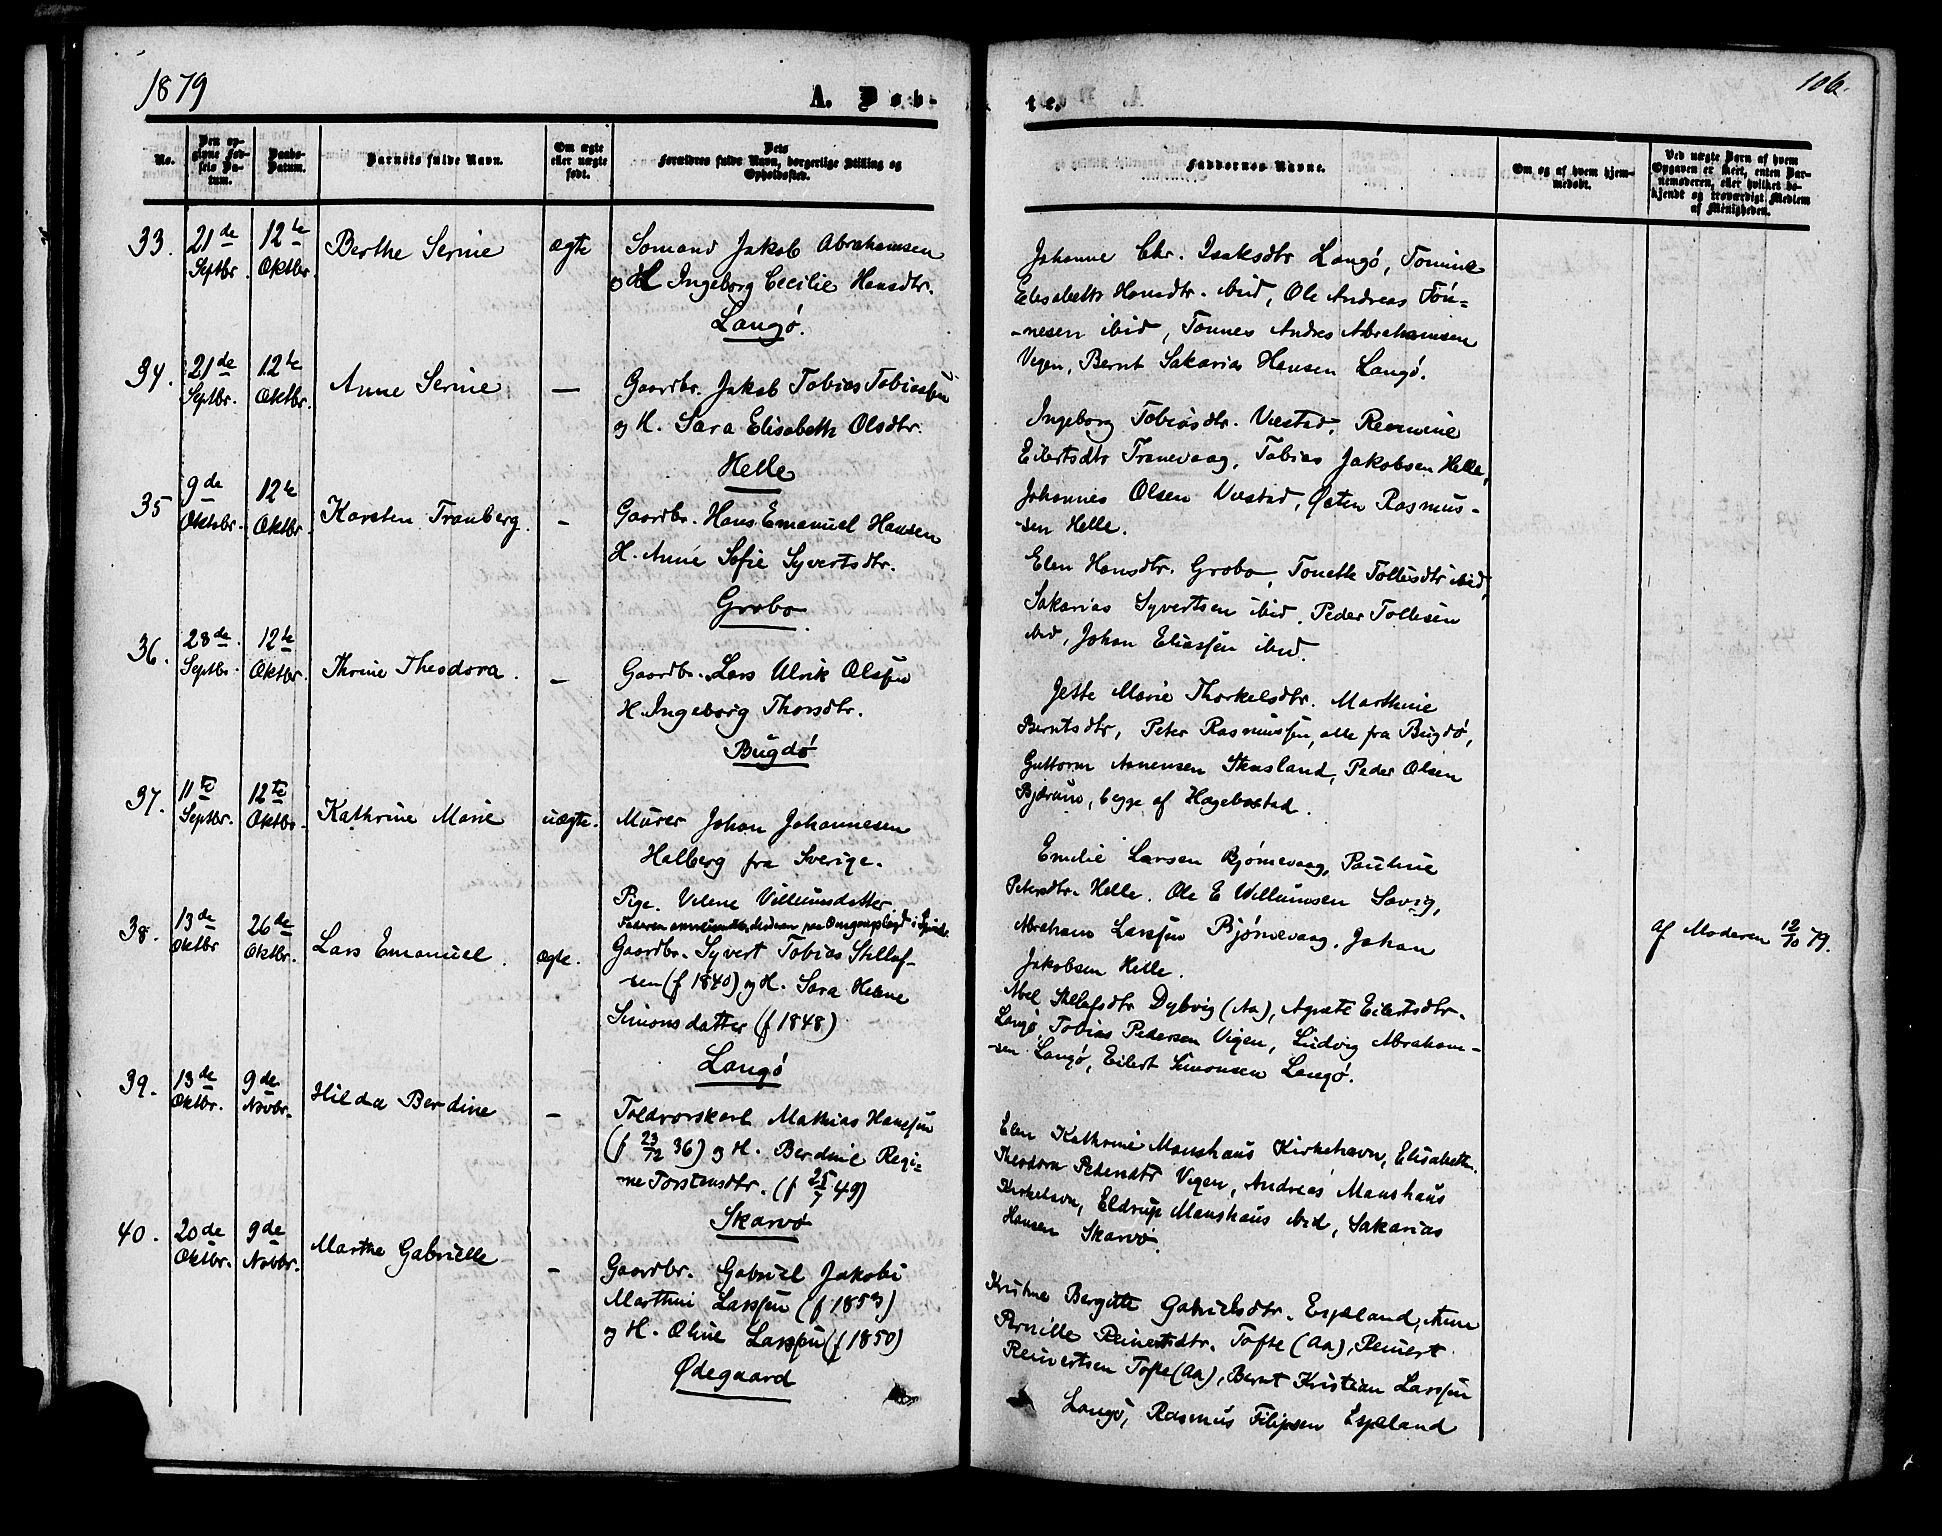 1879
A. Døb-
No.
Den op-
givne Fød-
sels Da-
tum.
Daabs-
Datum.
Barnets fulde Navn.
Om ægte
eller uægte
født.
Dets
Forældres fulde Navn, borgerlige Stilling og
Opholdssted.
33.
21de
Septbr.
12te
Oktbr.
Berthe Serine
ægte
Sømand Jakob Abrahamsen
og H. Ingeborg Cecilie Hansdtr.
Langø.
34.
21de
Septbr.
12te
Oktbr.
Anne Serine
—
Gaardbr. Jakob Tobias Tobiassen
og H. Sara Elisabeth Olsdtr.
Helle
35
9de
Oktobr.
12te
Oktbr.
Karsten Tranberg.
–
Gaardbr. Hans Emanuel Hansen
H. Anne Sofie Syvertsdtr.
Grobo
36.
28de
Septbr.
12te
Oktbr.
Thrine Theodora.
–
Gaardbr. Lars Ulrik Olsen
H. Ingeborg Thorsdtr.
Bugdø
37.
11te
Septbr.
12te
Oktbr.
Kathrine Marie
uægte.
Murer Johan Johannesen
Halberg fra Sverige.
Pige. Velene Villumsdatter
38.
13de
Oktbr
26de
Oktbr.
Lars Emanuel.
ægte.
Gaardbr. Syvert Tobias Stillef-
sen (f 1840) og H. Sara Helene
Simonsdatter (f 1848)
Langø
39.
13de
Oktbr.
9de
Novbr.
Hilda Berdine
–
Toldrorskarl Mathias Hanssen
(f 23/12 36) og H. Berdine Regi-
ne Torstensdtr. (f 25/7 49)
Skarvø
40.
20de
Oktbr.
9de
Novbr.
Marthe Gabrielle
–
Gaardbr. Gabriel Jakobi
Marthini Larssen (f 1853)
og H. Oline Larssen (f 1850)
Ødegaard
106.
te.
Faddernes Navne.
Om og af hvem hjem-
medøbt.
Ved uægte Barn af hvem
Opgaven er skeet, enten Bar-
nemoderen, eller hvilket be-
kjendt og troværdigt Medlem
af Menigheden.
Johanne Chr. Isaksdtr Langø, Tomine
Elisabeth Hansdtr. ibid, Ole Andreas Tön-
-nesen ibid, Tønnes Andres Abrahamsen
Vigen, Bernt Sakarias Hansen Langø.
Ingeborg Tobiasdtr. Væstad,
Eilertsdtr Tranevaag, Tobias Jakobsen Helle,
Johannes Olsen Væstad, Østen Rasmus-
-sen Helle.
Elen Hansdtr. Grobo, Tonette Tollisdtr ibid,
Sakarias Syvertsen ibid, Peder Tollisen
ibid, Johan Eliassen ibid.
Jette Marie Thorkelsdtr. Marthine
Berntsdtr, Peter Rasmussen, alle fra Bugdø,
Guttorm Stensland, Peder Olsen
begge af Hægebostad.
Emilie Larsen Bjørnevaag, Pauline
Petersdtr. Helle. Ole E Willumsen Savig,
Abraham Larssen Bjørnevaag, Johan
Jakobsen Helle.
af Moderen 12/10 79.
Abel Stillefsdtr Dybvig (Aa), Agnete Eilertsdtr.
Langø, Tobias Pedersen Vigen, Ludvig Abraham-
-sen Langø, Eilert Simonsen Langø.
Elen Kathrine Manshaus Kirkehavn, Elisabeth
Theodora Pedersdtr Vigen, Andreas Manshaus
Kirkehavn, Eldrup Manshaus ibid, Sakarias
Hansen Skarvø.
Kristine Bergitte Gabrielsdtr. Espeland, Anne
Pernille Reinertsdtr. Tofte (Aa), Reinert
Reinertsen Tofte (Aa), Bernt Kristian Larssen
Langø, Rasmus Filipsen Espeland